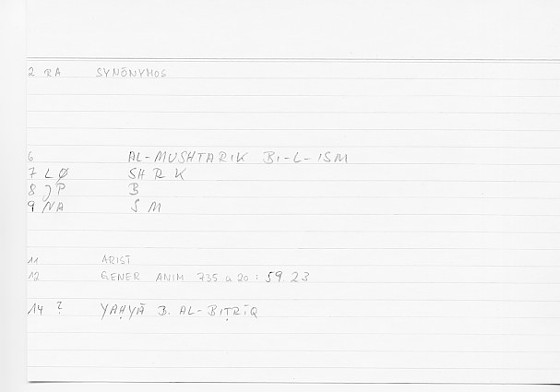 2 KA SYNŌNYMOS
6 AL-MUSHTARIK BI-L-ISM
7 LØ SH R K
8 JP B
9 NA S M
11 ARIST
12 GENER ANIM 735 a 20 : 59.23
14 ? YAḤYĀ B. AL-BIṬRĪQ